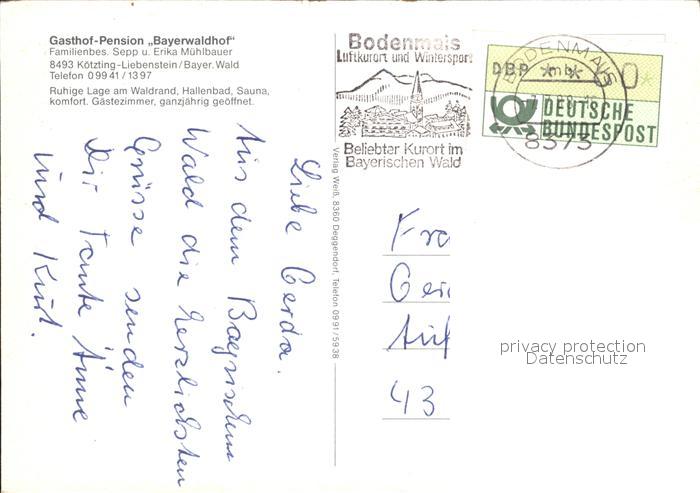 Gasthof-Pension „Bayerwaldhof"
Familienbes. Sepp u. Erika Mühlbauer
8493 Kötzting-Liebenstein/Bayer. Wald
Telefon 0 99 41 / 13 97
Ruhige Lage am Waldrand, Hallenbad, Sauna,
komfort. Gästezimmer, ganzjährig geöffnet.
Liebe Gerda.
Aus dem Bayrischem
Wald die herzlichsten
Grüsse senden
Dir Tante Anne
und Kurt.
Verlag Weiß, 8360 Deggendorf, Telefon 09 91/59 38
Bodenmais
Luftkurort und Wintersport
Beliebter Kurort im
Bayerischen Wald
BODENMAIS
8373
DBP
DEUTSCHE
BUNDESPOST
Fra
Ger
Auf
43
privacy protection
Datenschutz